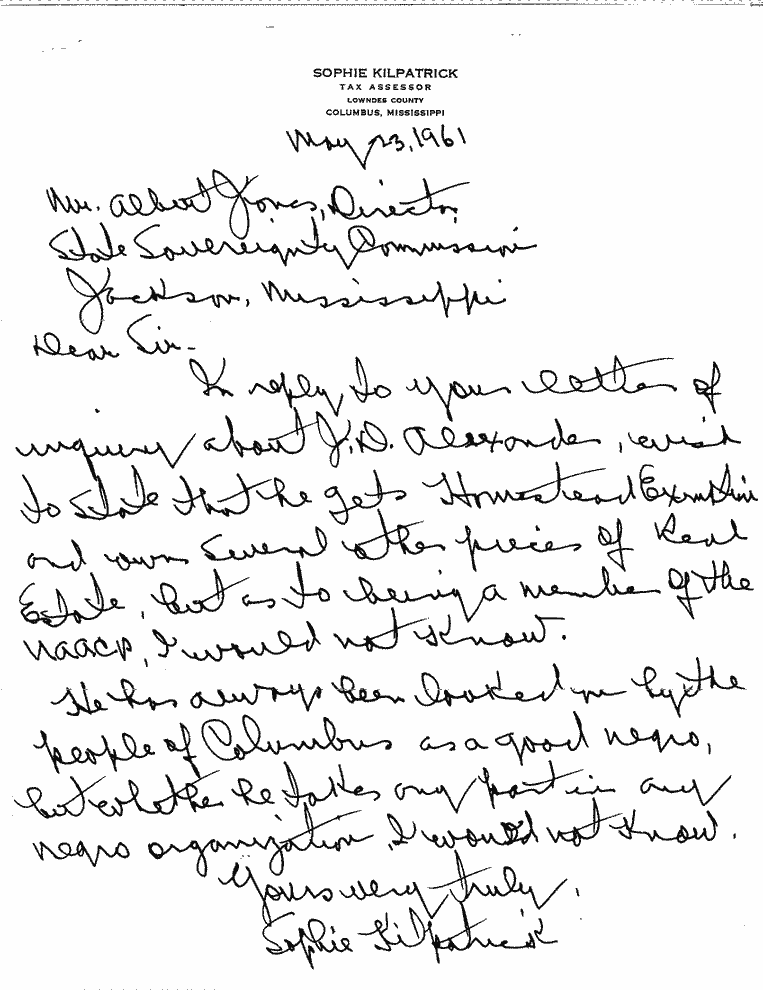 SOPHIE KILPATRICK
TAX ASSESSOR
LOWNDES COUNTY
COLUMBUS, MISSISSIPPI
May 23, 1961
Mr. Albert Jones, Director
State Sovereignty Commission
Jackson, Mississippi
Dear Sir-
In reply to your letter of
inquiry about J.D. Alexander, wish
to state that he gets Homestead Exemption
and owns several other pieces of Real
Estate, but as to being a member of the
NAACP, I would not know.
He has always been looked on by the
people of Columbus as a good negro,
but whether he takes any part in any
negro organization, I would not know.
Yours very truly,
Sophie Kilpatrick